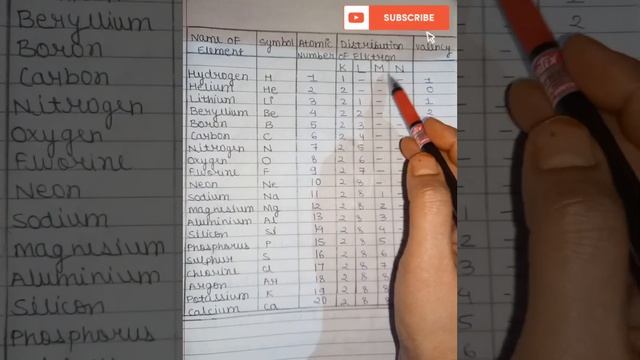 SUBSCRIBE
Name of Element Symbol Atomic Number Distribution of Elektron Valency
K L M N
Hydrogen H 1 1 - - - 1
Helium He 2 2 - - 0
Lithium Li 3 2 1 - - 1
Beryllium Be 4 2 2 - - 2
Boron B 5 2 3 -
Carbon C 6 2 4 -
Nitrogen N 7 2 5 -
Oxygen O 8 2 6 -
Fluorine F 9 2 7 -
Neon Ne 10 2 8 -
Sodium Na 11 2 8 1
Magnesium Mg 12 2 8 2
Aluminium Al 13 2 8 3
Silicon Si 14 2 8 4
Phosphorus P 15 2 8 5
Sulphur S 16 2 8 6
Chlorine Cl 17 2 8 7
Argon Ar 18 2 8 8
Potassium K 19 2 8 8
Calcium Ca 20 2 8 8
Beryllium
Boron
Carbon
Nitrogen
Oxygen
Fluorine
Neon
Sodium
Magnesium
Aluminium
Silicon
Phosphorus
2